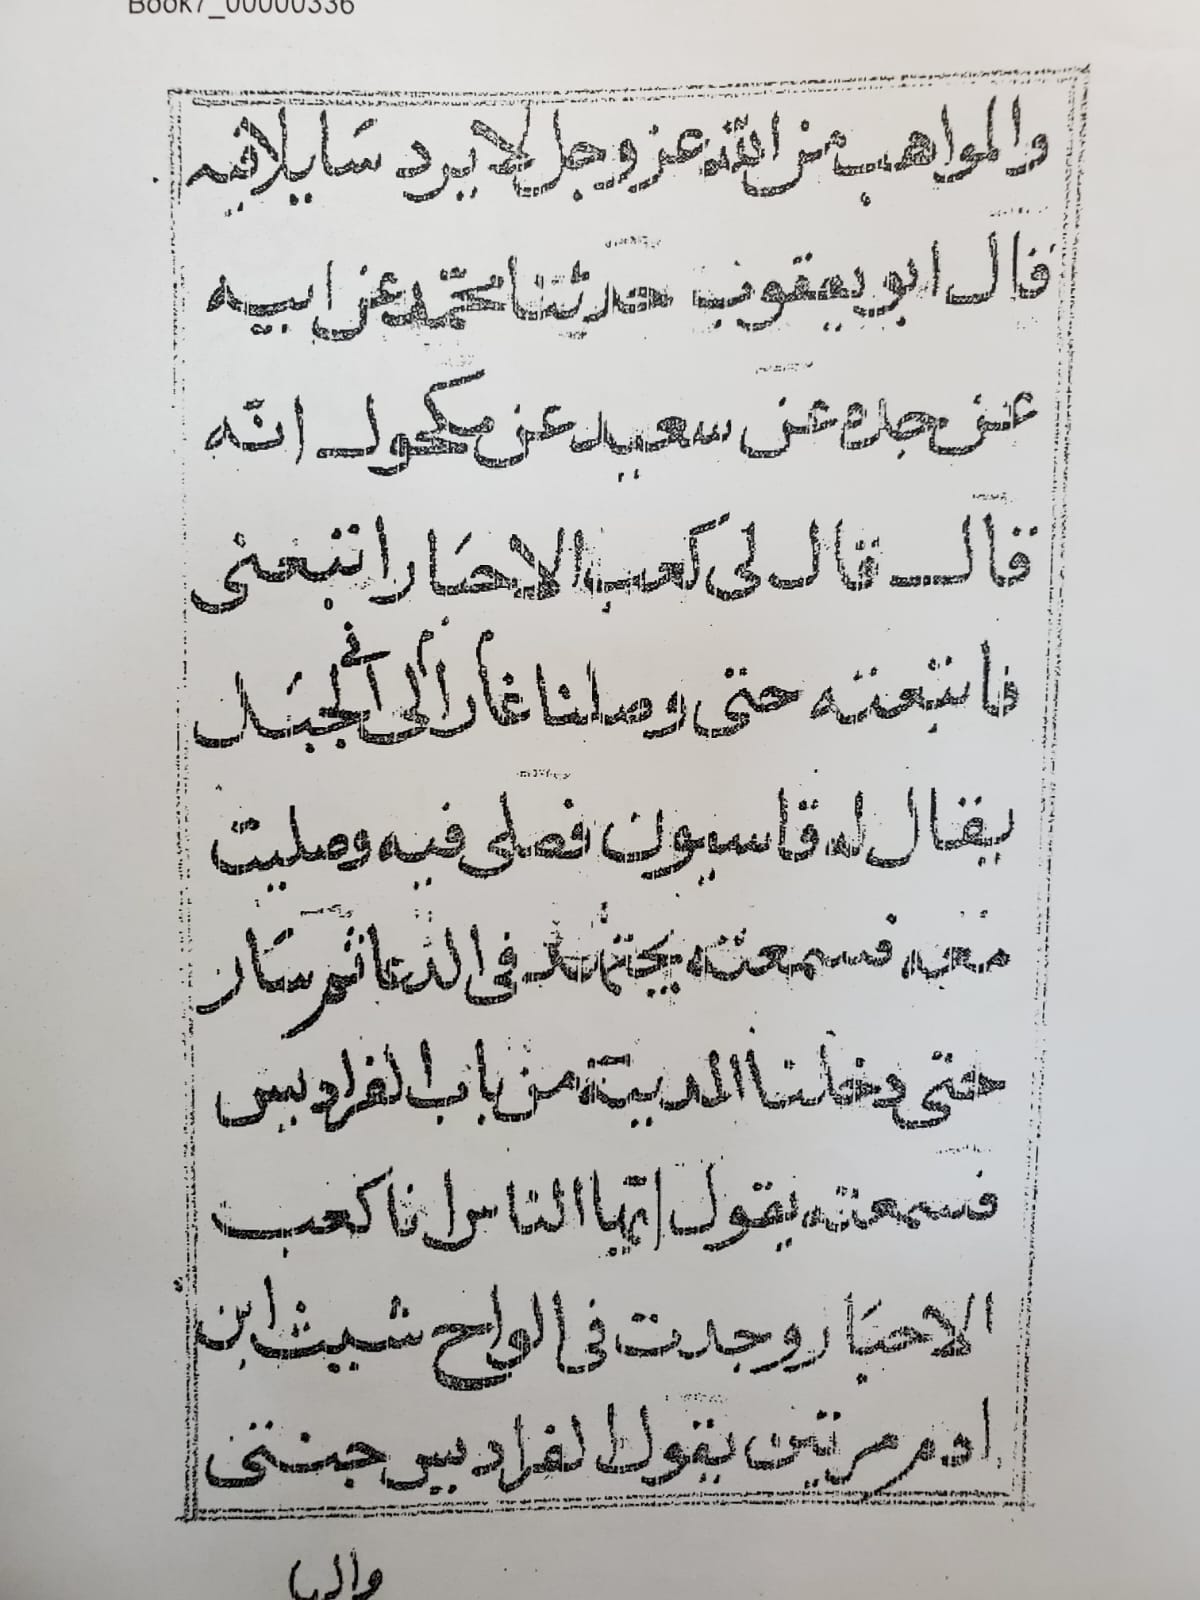 Book7_00000336
والمواهب من الله عز وجل لا يرد سايلا فيه
قال ابو يعقوب حدثنا محمد عن ابيه
عن جده عن سعيد عن مكحول انه
قال قال لى كعب الاحبار اتبعنى
فاتبعته حتى وصلنا غارا الى فى الجبل
يقال له قاسيون فصلى فيه وصليت
معه فسمعته يجتهد فى الدعا ثم سار
حتى دخلنا المدينة من باب الفراديس
فسمعته يقول ايها الناس انا كعب
الاحبار وجدت فى الواح شيث ابن
ادم مرتين يقول الفراديس جنتى